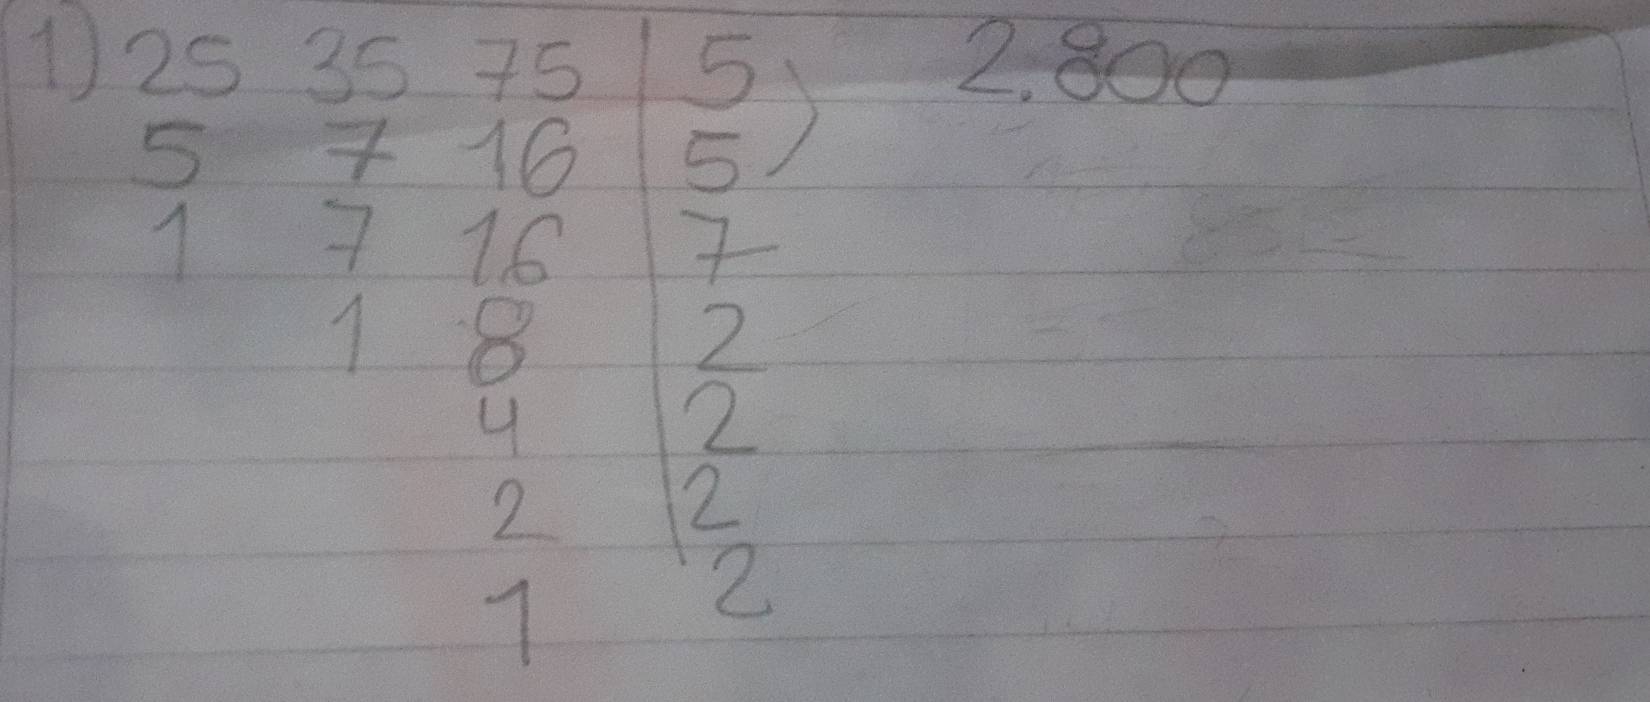 1) 25 35 75 | 5 2.800
5 7 16 | 5
1 7 16 | 7
1 8 | 2
4 | 2
2 | 2
1 2